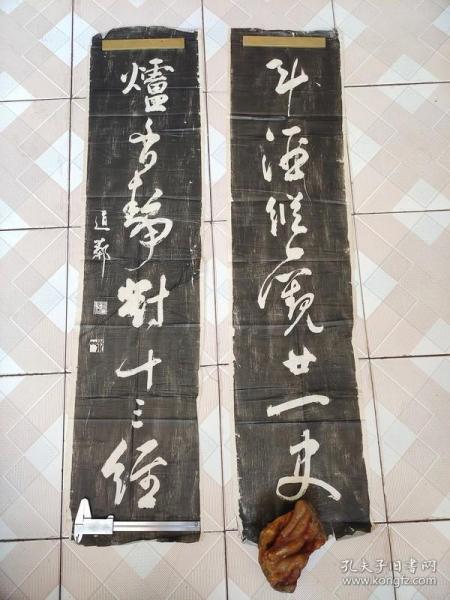 斗酒縱觀廿一史
爐香靜對十三經
道鄰
孔夫子旧书网
www.kongfz.com